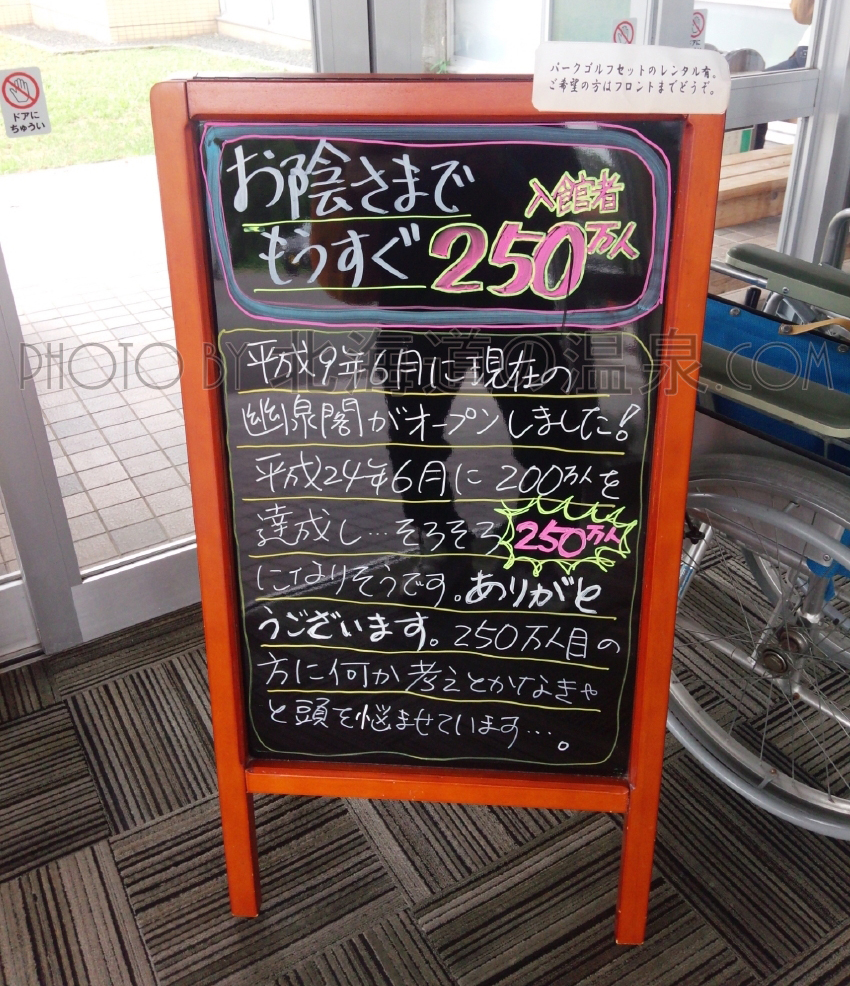 パークゴルフセットのレンタル有。
ご希望の方はフロントまでどうぞ。
ドアに
ちゅうい
お陰さまで
もうすぐ
入館者
250万人
PHOTO BY 北海道の温泉.COM
平成9年6月に現在の
幽泉閣がオープンしました!
平成24年6月に200万人を
達成し…そろそろ250万人
になりそうです。ありがと
うございます。250万人目の
方に何か考えとかなきゃ
と頭を悩ませています…。